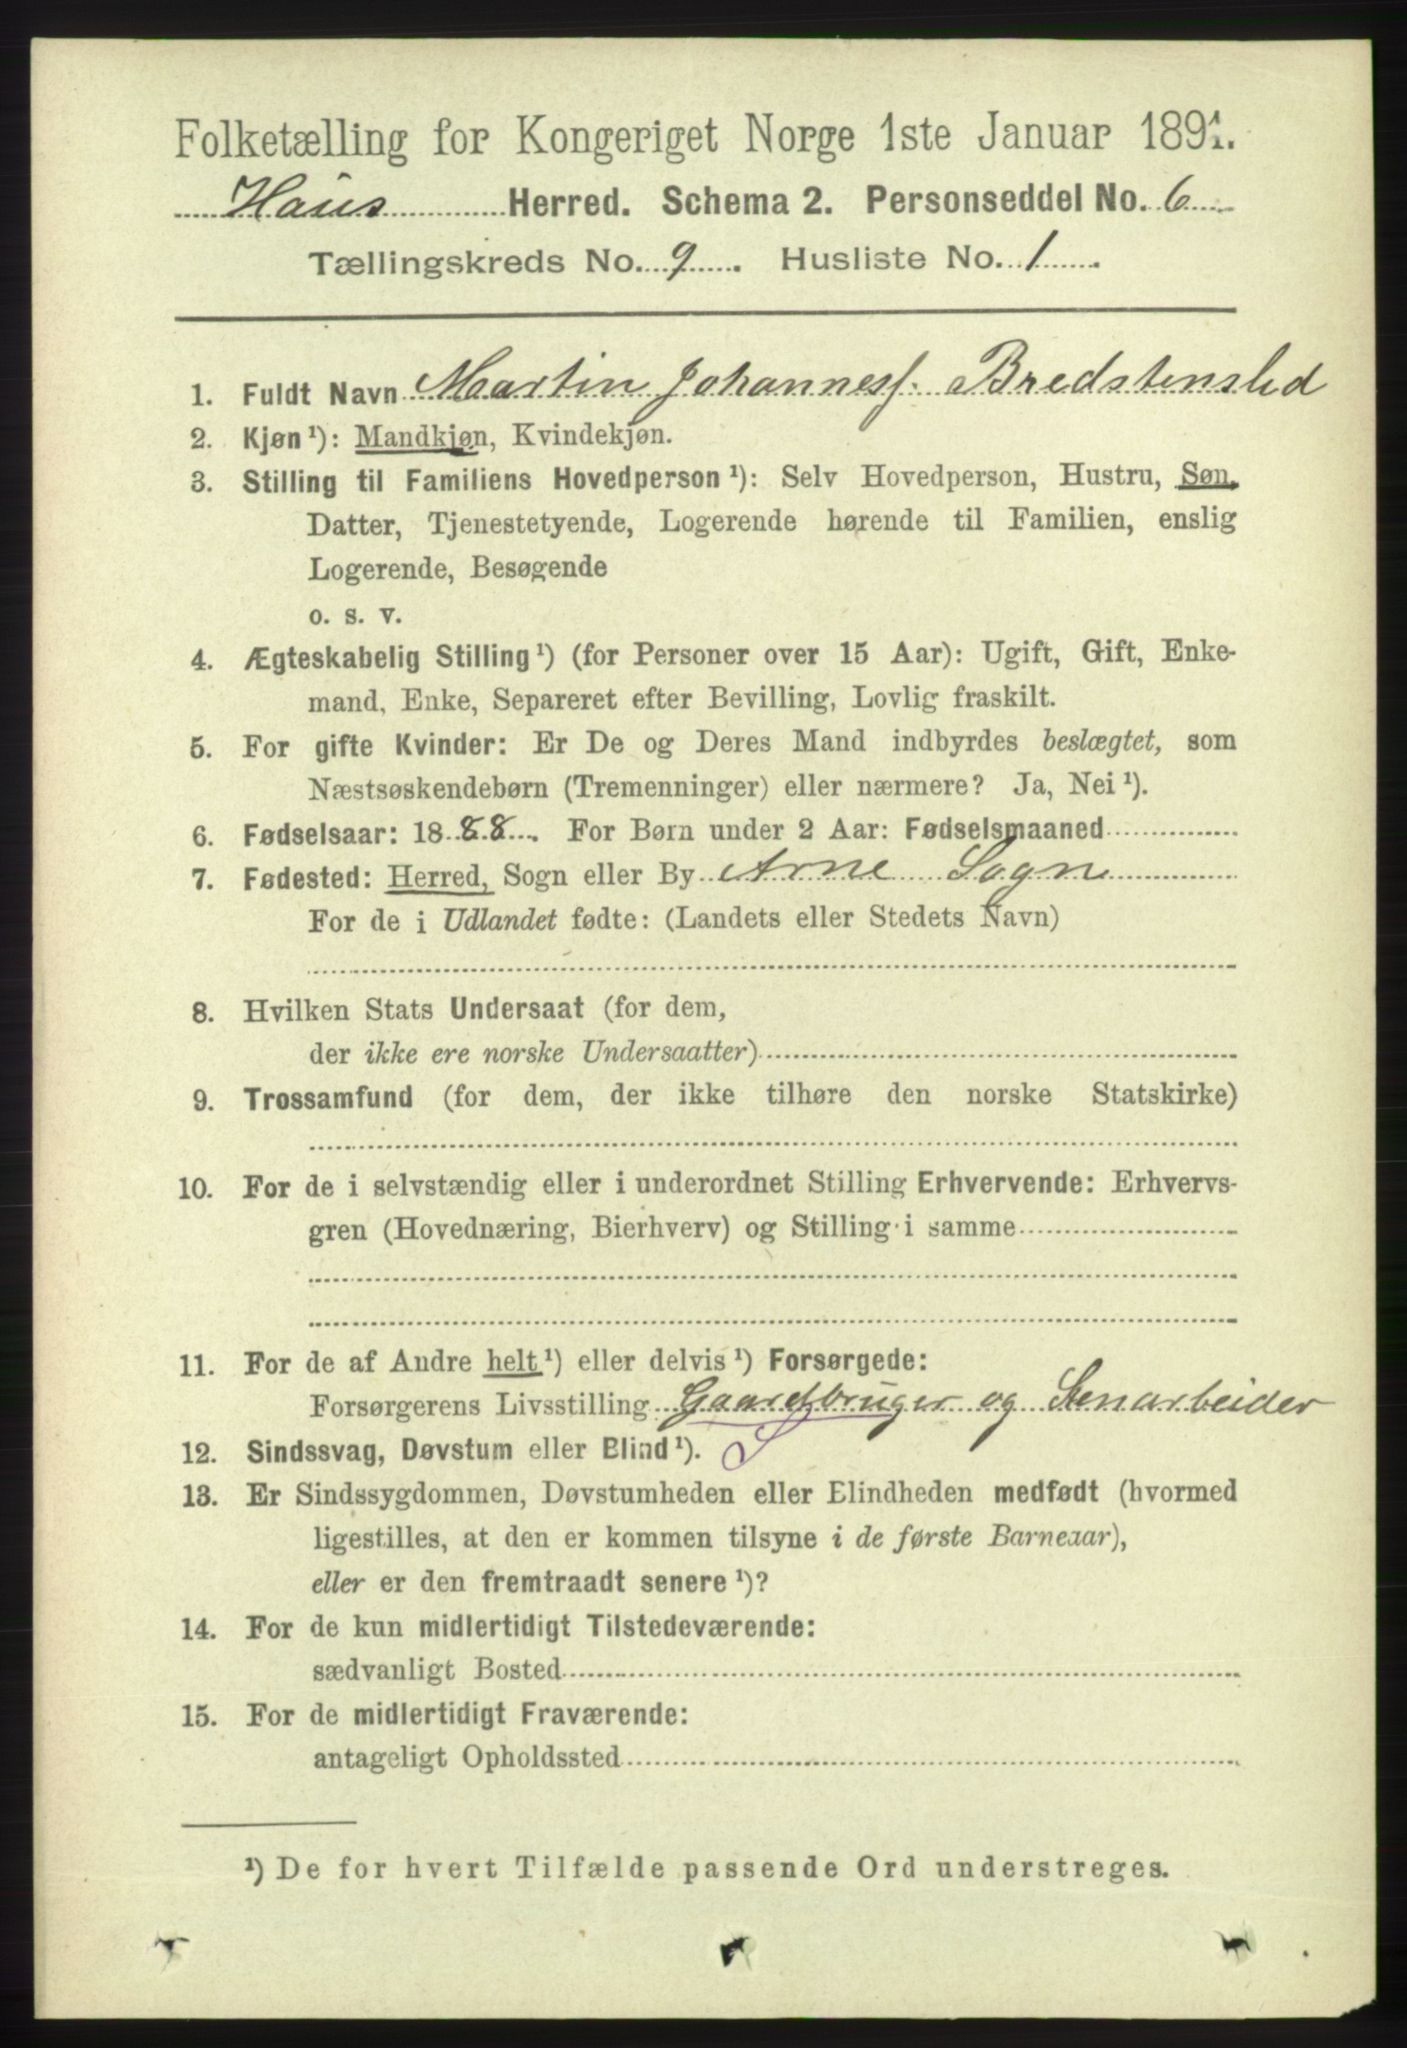 Folketælling for Kongeriget Norge 1ste Januar 1891.
Haus Herred. Schema 2. Personseddel No. 6
Tællingskreds No. 9. Husliste No. 1.
1. Fuldt Navn Martin Johannesf. Bredstenslid
2. Kjøn ¹): Mandkjøn, Kvindekjøn.
3. Stilling til Familiens Hovedperson ¹): Selv Hovedperson, Hustru, Søn,
Datter, Tjenestetyende, Logerende hørende til Familien, enslig
Logerende, Besøgende
o. s. v.
4. Ægteskabelig Stilling ¹) (for Personer over 15 Aar): Ugift, Gift, Enke-
mand, Enke, Separeret efter Bevilling, Lovlig fraskilt.
5. For gifte Kvinder: Er De og Deres Mand indbyrdes beslægtet, som
Næstsøskendebørn (Tremenninger) eller nærmere? Ja, Nei ¹).
6. Fødselsaar: 1888. For Børn under 2 Aar: Fødselsmaaned
7. Fødested: Herred, Sogn eller By Arne Sogn
For de i Udlandet fødte: (Landets eller Stedets Navn)
8. Hvilken Stats Undersaat (for dem,
der ikke ere norske Undersaatter)
9. Trossamfund (for dem, der ikke tilhøre den norske Statskirke)
10. For de i selvstændig eller i underordnet Stilling Erhvervende: Erhvervs-
gren (Hovednæring, Bierhverv) og Stilling i samme
11. For de af Andre helt ¹) eller delvis ¹) Forsørgede:
Forsørgerens Livsstilling Gaardbruger og Stenarbeider
12. Sindssvag, Døvstum eller Blind ¹). S
13. Er Sindssygdommen, Døvstumheden eller Blindheden medfødt (hvormed
ligestilles, at den er kommen tilsyne i de første Barneaar),
eller er den fremtraadt senere ¹)?
14. For de kun midlertidigt Tilstedeværende:
sædvanligt Bosted
15. For de midlertidigt Fraværende:
antageligt Opholdssted
¹) De for hvert Tilfælde passende Ord understreges.